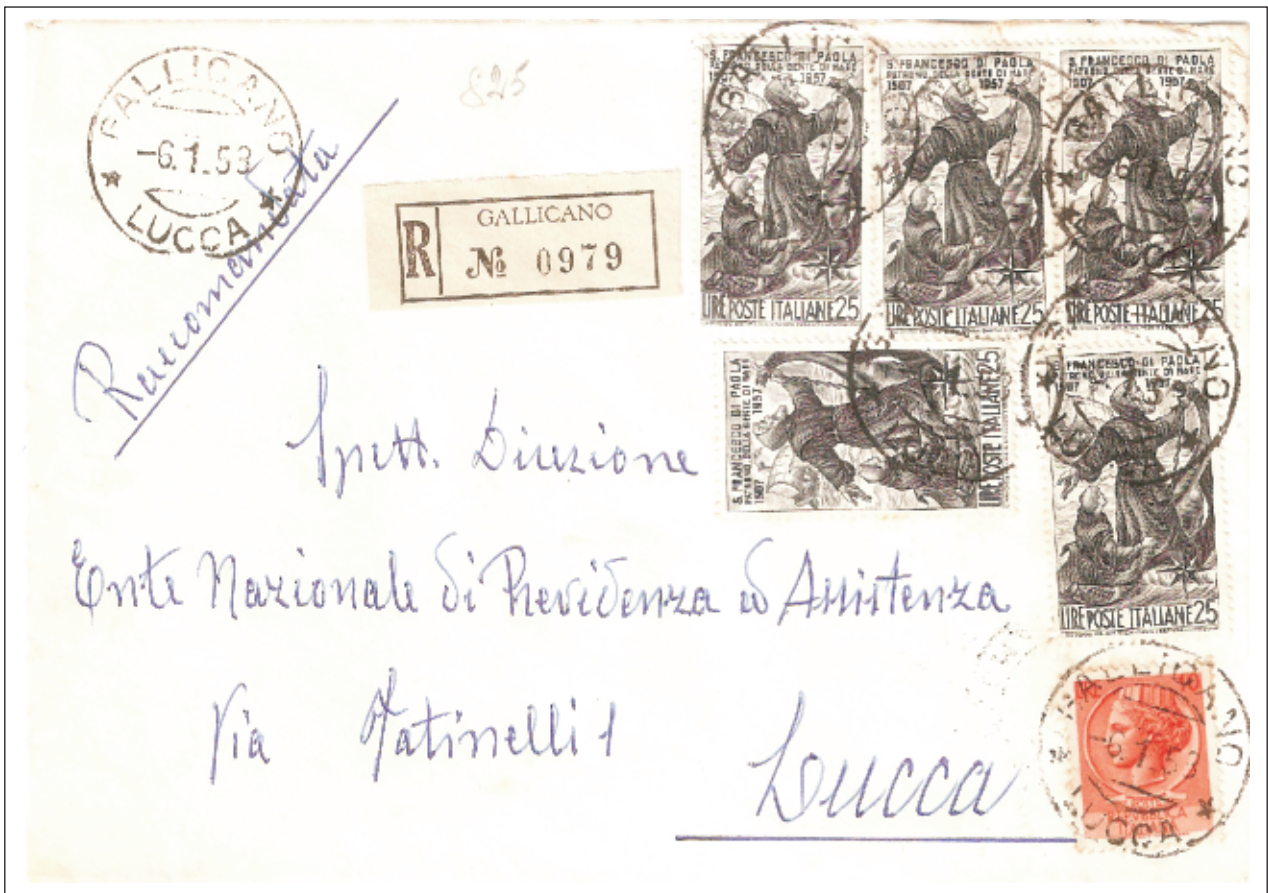 GALLICANO
-6.1.58
LUCCA
825
Raccomandata
R
GALLICANO
№ 0979
S. FRANCESCO DI PAOLA
PATRONO DELLA GENTE DI MARE
1507 1957
LIRE POSTE ITALIANE 25
S. FRANCESCO DI PAOLA
PATRONO DELLA GENTE DI MARE
1507 1957
LIRE POSTE ITALIANE 25
S. FRANCESCO DI PAOLA
PATRONO DELLA GENTE DI MARE
1507 1957
LIRE POSTE ITALIANE 25
S. FRANCESCO DI PAOLA
PATRONO DELLA GENTE DI MARE
1507 1957
LIRE POSTE ITALIANE 25
S. FRANCESCO DI PAOLA
PATRONO DELLA GENTE DI MARE
1507 1957
LIRE POSTE ITALIANE 25
Spett. Direzione
Ente Nazionale di Previdenza ed Assistenza
Via Fatinelli 1
Lucca
GALLICANO
-6.1.58
LUCCA